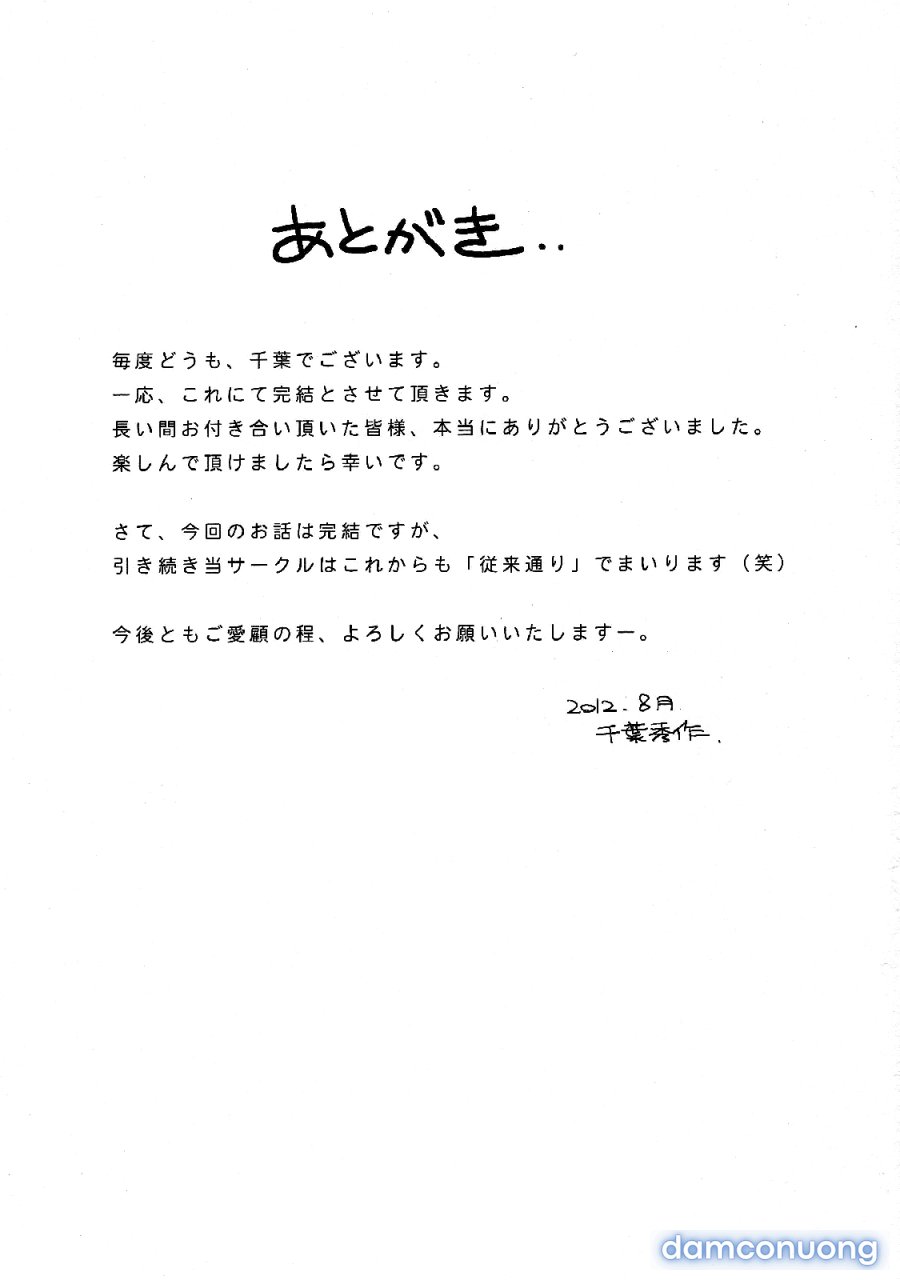 あとがき..
毎度どうも、千葉でございます。
一応、これにて完結とさせて頂きます。
長い間お付き合い頂いた皆様、本当にありがとうございました。
楽しんで頂けましたら幸いです。
さて、今回のお話は完結ですが、
引き続き当サークルはこれからも「従来通り」でまいります（笑）
今後ともご愛顧の程、よろしくお願いいたしますー。
2012.8月
千葉秀作.
damconuong